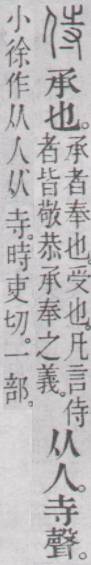 侍承也。承者奉也。受也。凡言侍
者皆敬恭承奉之義。从人。寺聲。
小徐作从人从寺。時吏切。一部。